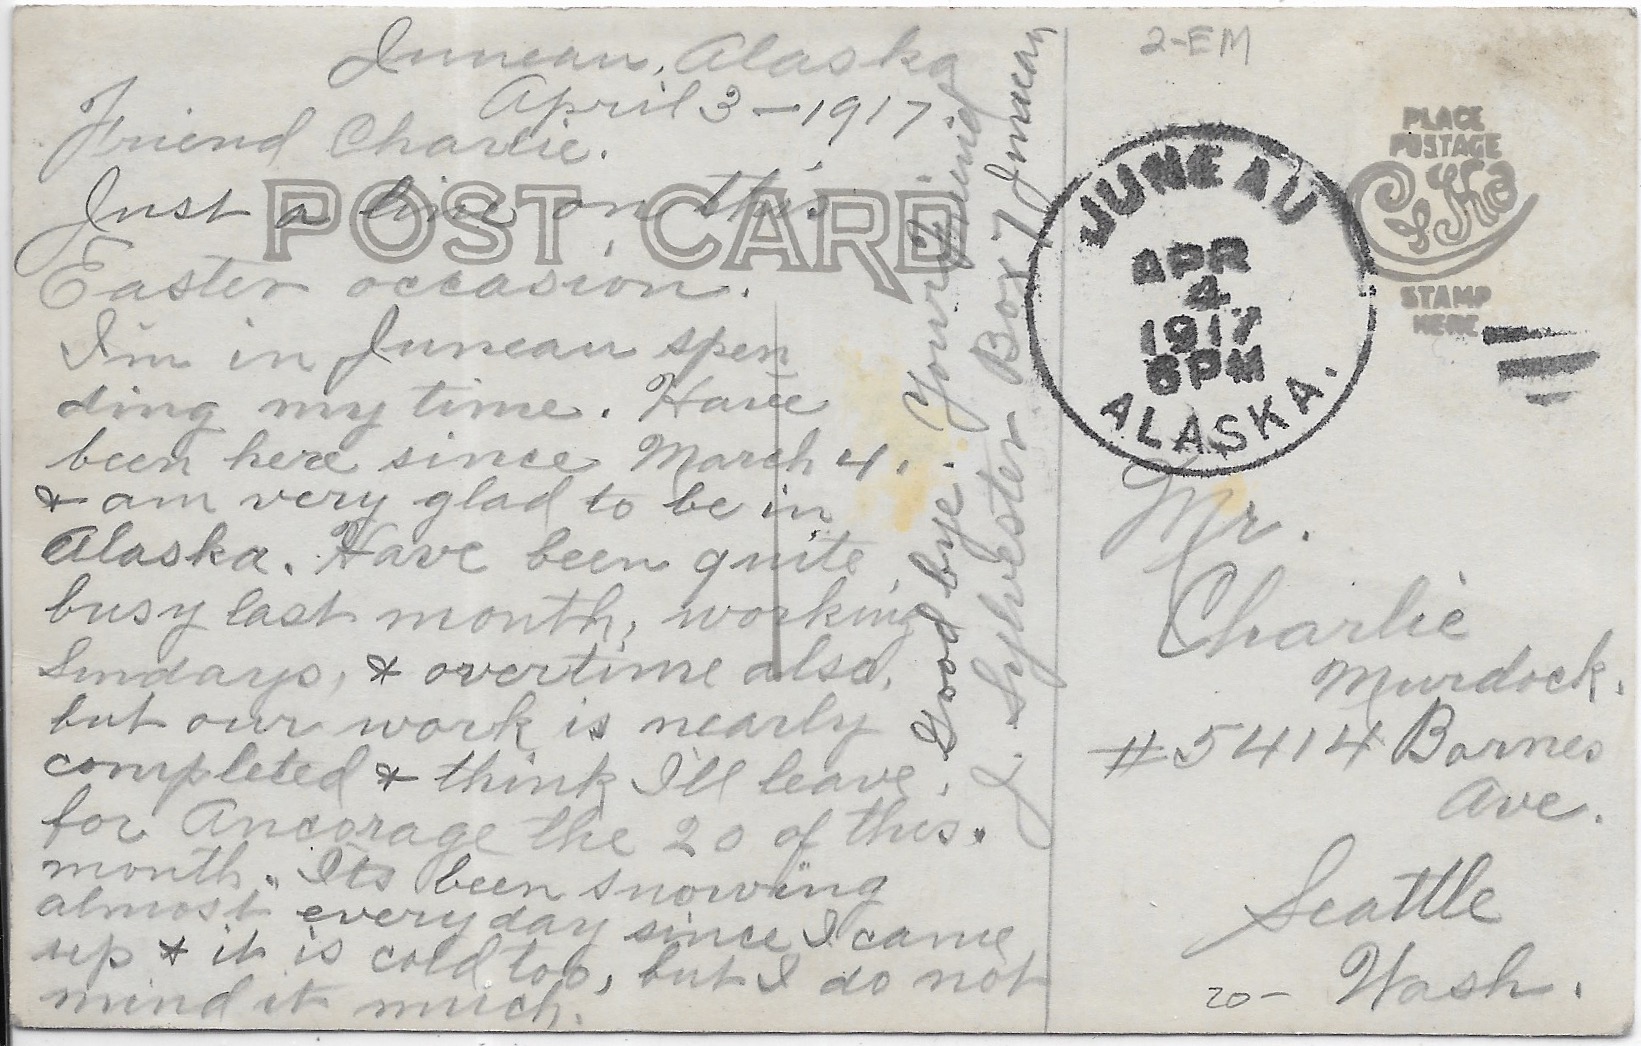 2-EM
Juneau, Alaska
April 3-1917.
Friend Charlie.
POST CARD
Just a line on this
Easter occasion.
I'm in Juneau spen
ding my time. Have
been here since March 4.
& am very glad to be in
Alaska. Have been quite
busy last month, working
Sundays, & overtime also,
but our work is nearly
completed & think I'll leave
for Ancorage the 20 of this.
month. Its been snowing
almost every day since I came
up & it is cold too, but I do not
mind it much.
Good bye. Your Friend
J. Sylvester. Box 7 Juneau
PLACE
POSTAGE
STAMP
HERE
JUNEAU
APR
4
1917
6PM
ALASKA.
Mr.
Charlie
Murdock.
#5414 Barnes
Ave.
Seattle
Wash.
20-